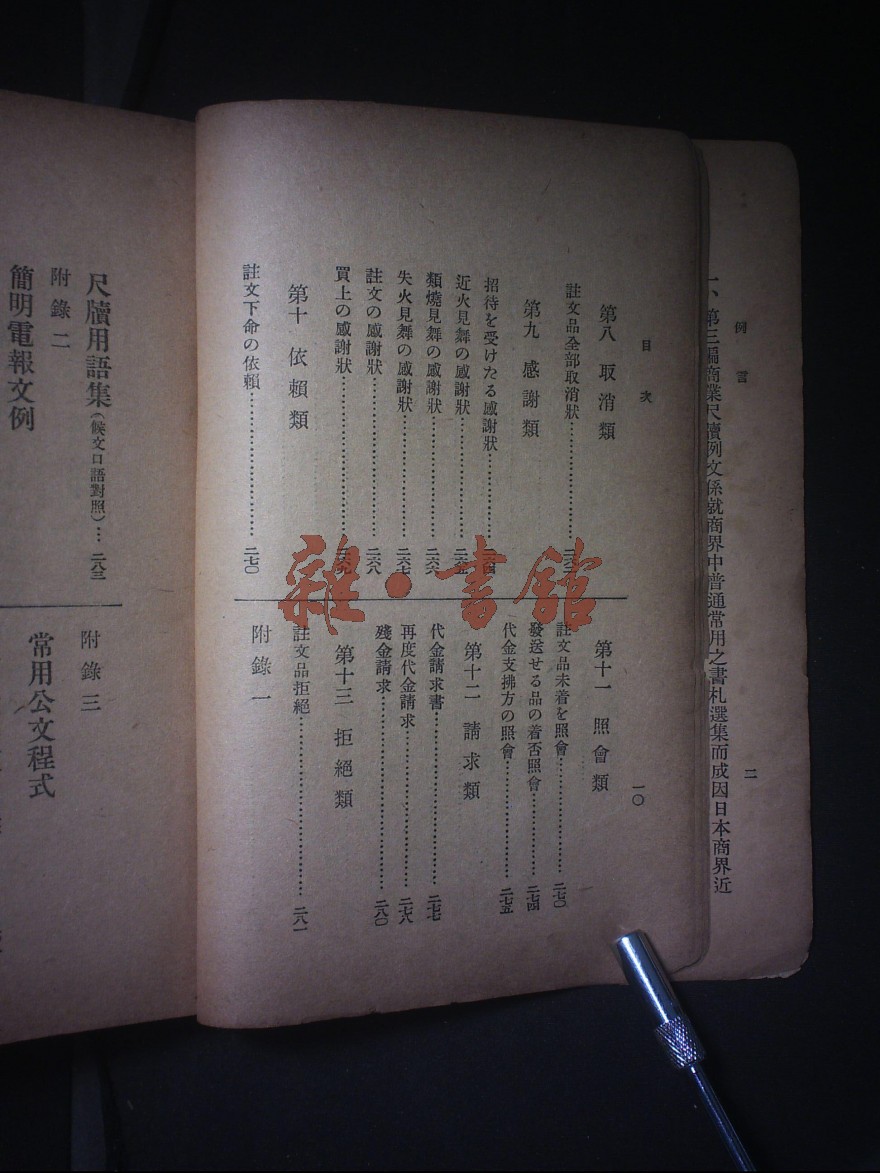 例言
二
一、第三編商業尺牘例文係就商界中普通常用之書札選集而成因日本商界近
目次
一〇
第八 取消類
註文品全部取消狀
第九 感謝類
招待を受けたる感謝狀
近火見舞の感謝狀
類燒見舞の感謝狀…二六六
失火見舞の感謝狀…二六七
註文の感謝狀…二六八
買上の感謝狀
第十 依賴類
註文下命の依賴…二七〇
第十一 照會類
註文品未着を照會…二七〇
發送せる品の着否照會…二七四
代金支拂方の照會…二七五
第十二 請求類
代金請求書…二七七
再度代金請求…二七八
殘金請求…二八〇
第十三 拒絕類
註文品拒絕…二八一
附錄一
尺牘用語集(候文口語對照)…二八三
附錄二
簡明電報文例
附錄三
常用公文程式
雜·書館